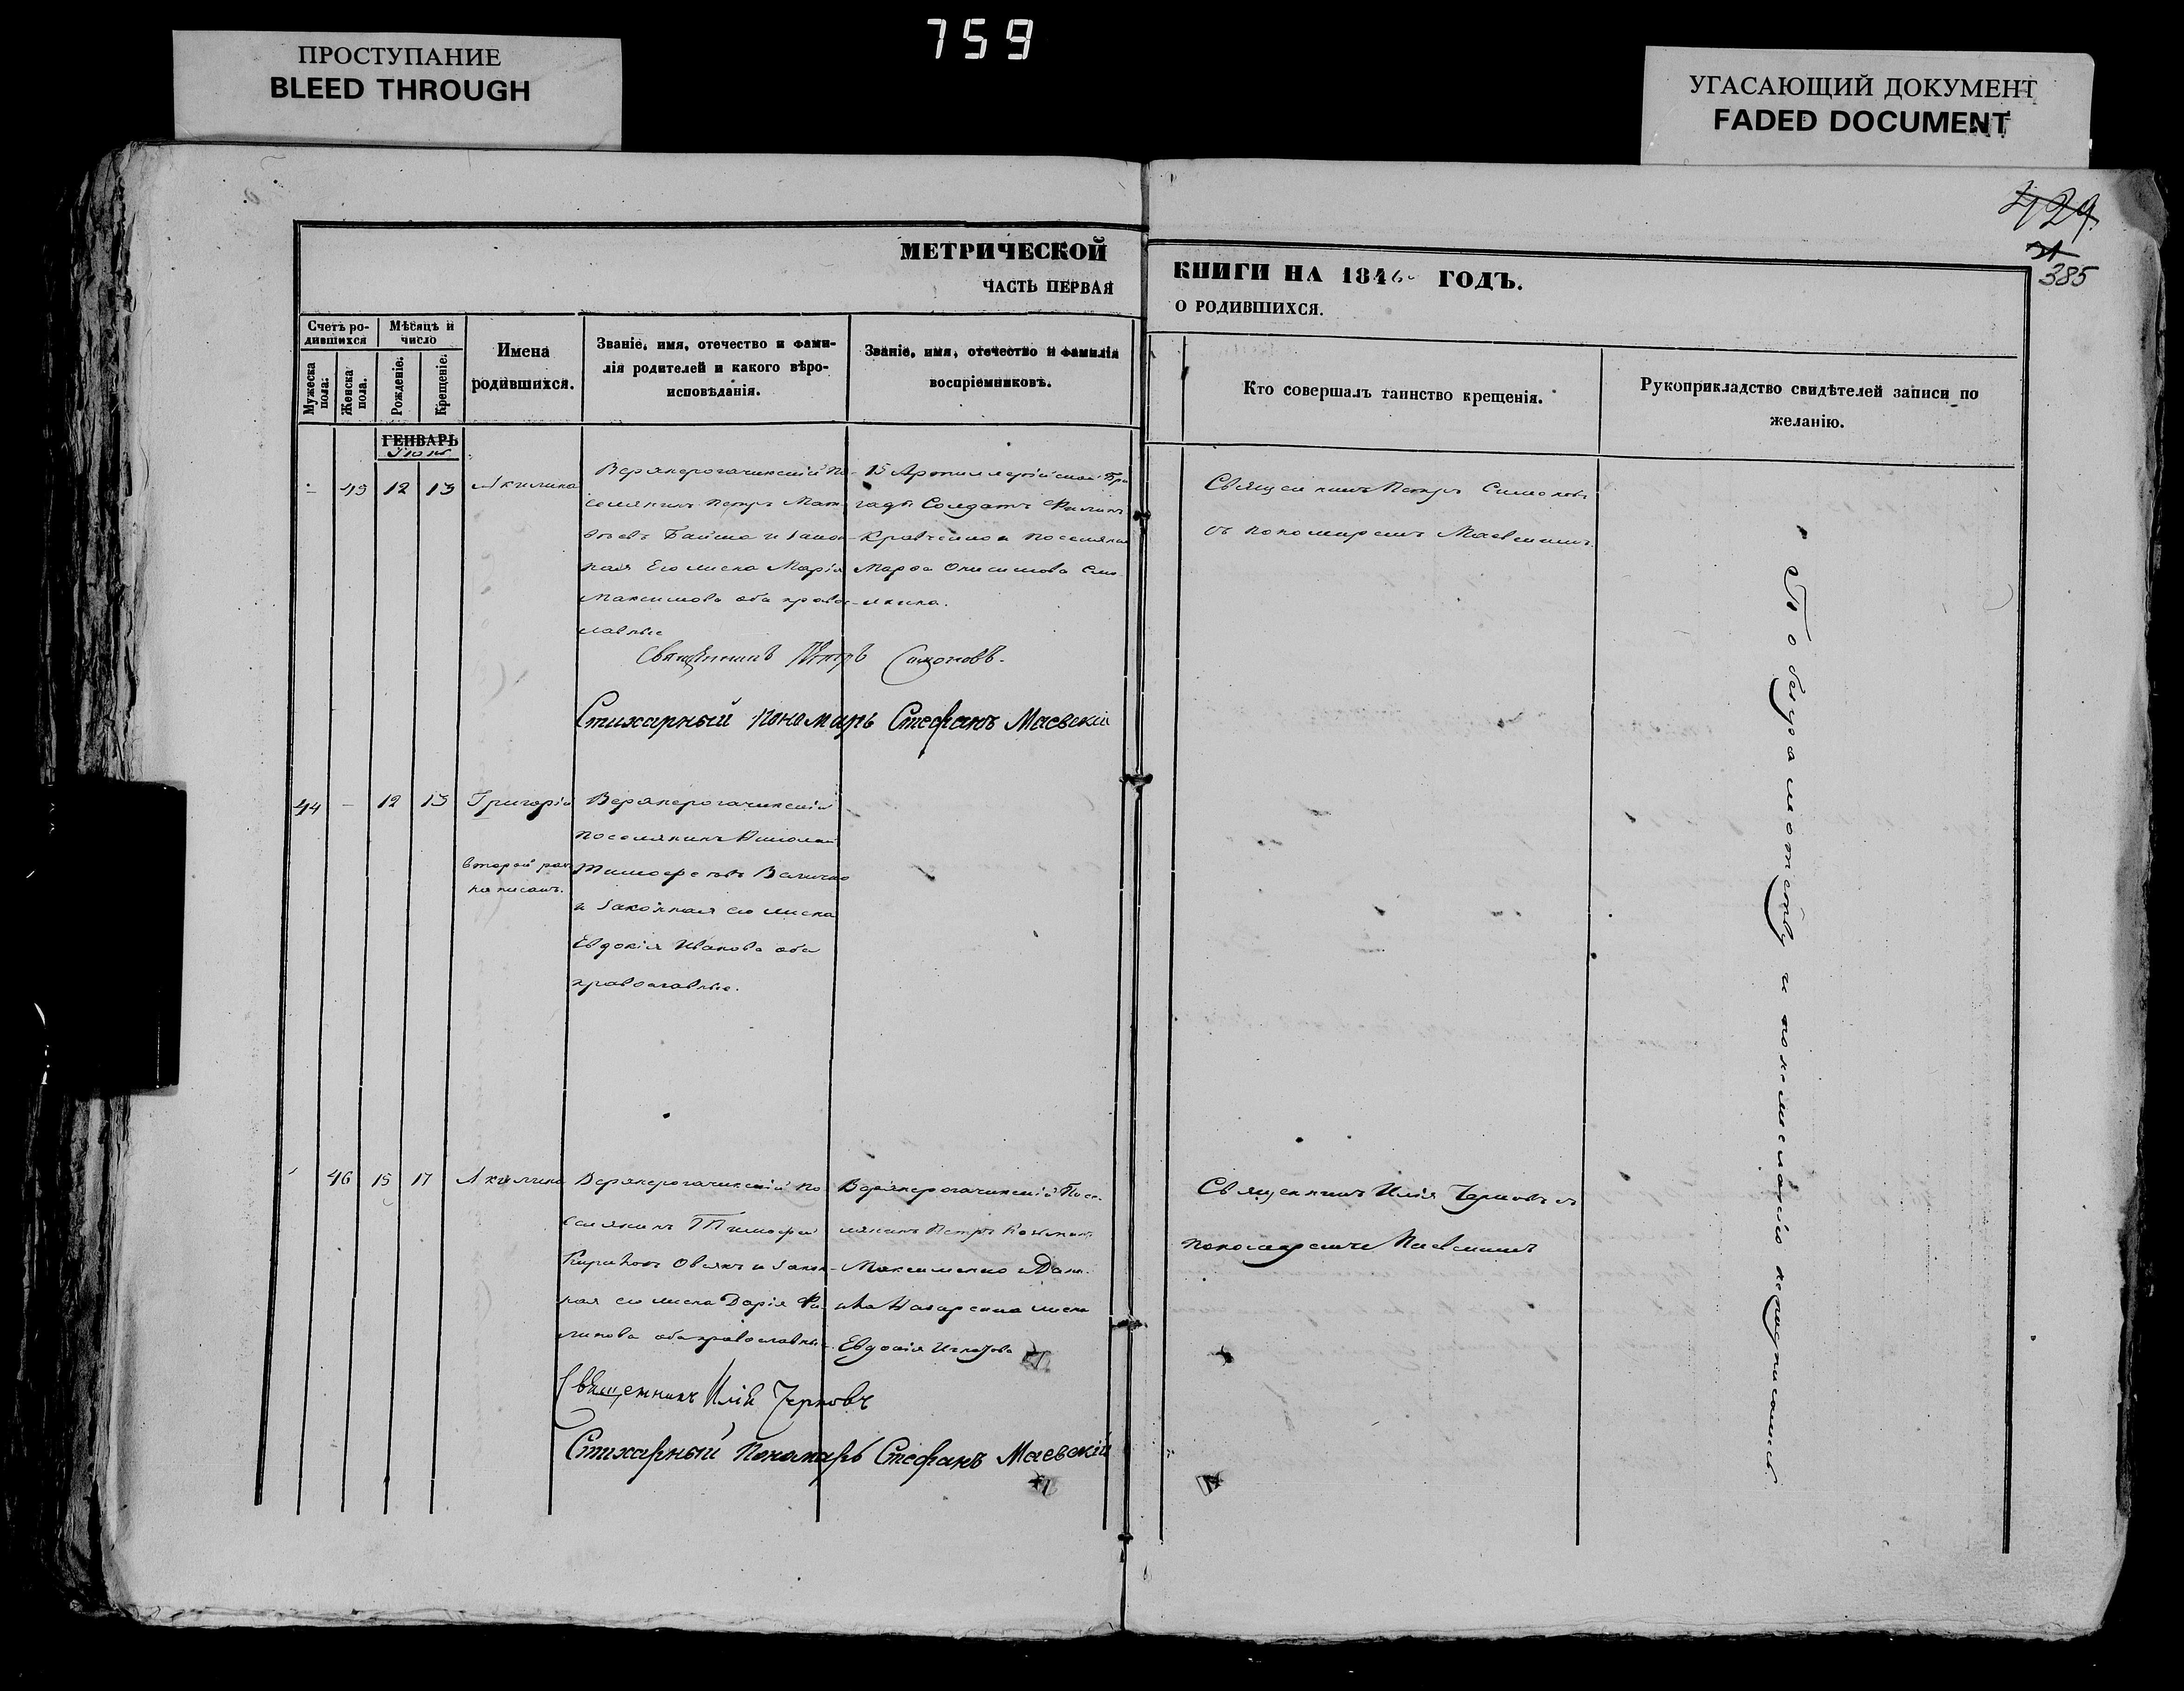 759
ПРОСТУПАНИЕ
BLEED THROUGH
УГАСАЮЩИЙ ДОКУМЕНТ
FADED DOCUMENT
429
385
МЕТРИЧЕСКОЙ
ЧАСТЬ ПЕРВАЯ
КНИГИ НА 1846 ГОДЪ.
О РОДИВШИХСЯ.
Счетъ ро-
дившихся
Мужеска
пола.
Женска
пола.
Мѣсяцъ и
число
Рожденіе.
Крещеніе.
Имена
родившихся.
Званіе, имя, отечество и фами-
лія родителей и какого вѣро-
исповѣданія.
Званіе, имя, отечество и фамилія
воспріемниковъ.
Кто совершалъ таинство крещенія.
Рукоприкладство свидѣтелей записи по
желанію.
ГЕНВАРЬ
Іюнь
45 12 13 Акилина
Верхнерогачинскій по-
селянинъ Петръ Мат-
вѣевъ и закон-
ная его жена Марія
Максимова оба право-
славные
15 Артиллерійской Бри
гады Солдатъ Филипъ
Кравченко и поселянка
Марфа Онисимова
Священникъ Петръ Симоновъ
съ пономаремъ Маевскимъ
Священникъ Петръ Симоновъ.
Стихарный пономарь Стефанъ Маевскій
44 – 12 13 Григорій
второй разъ
написанъ.
Верхнерогачинскій
поселянинъ Николай
Тимофеевъ Величко
и законная его жена
Евдокія Иванова оба
православные.
46 15 17 Акилина
Верхнерогачинскій по
селянинъ Тимофей
и закон-
ная его жена Дарія Фи-
липова оба православные.
Верхнерогачинскій Посе-
лянинъ Петръ
Максименко
Назаренка жена
Евдокія Игнатова
Священникъ Илія Черновъ съ
пономаремъ Маевскимъ
Священникъ Илія Черновъ
Стихарный пономарь Стефанъ Маевскій
По безграмотству и по нежеланію неподписались